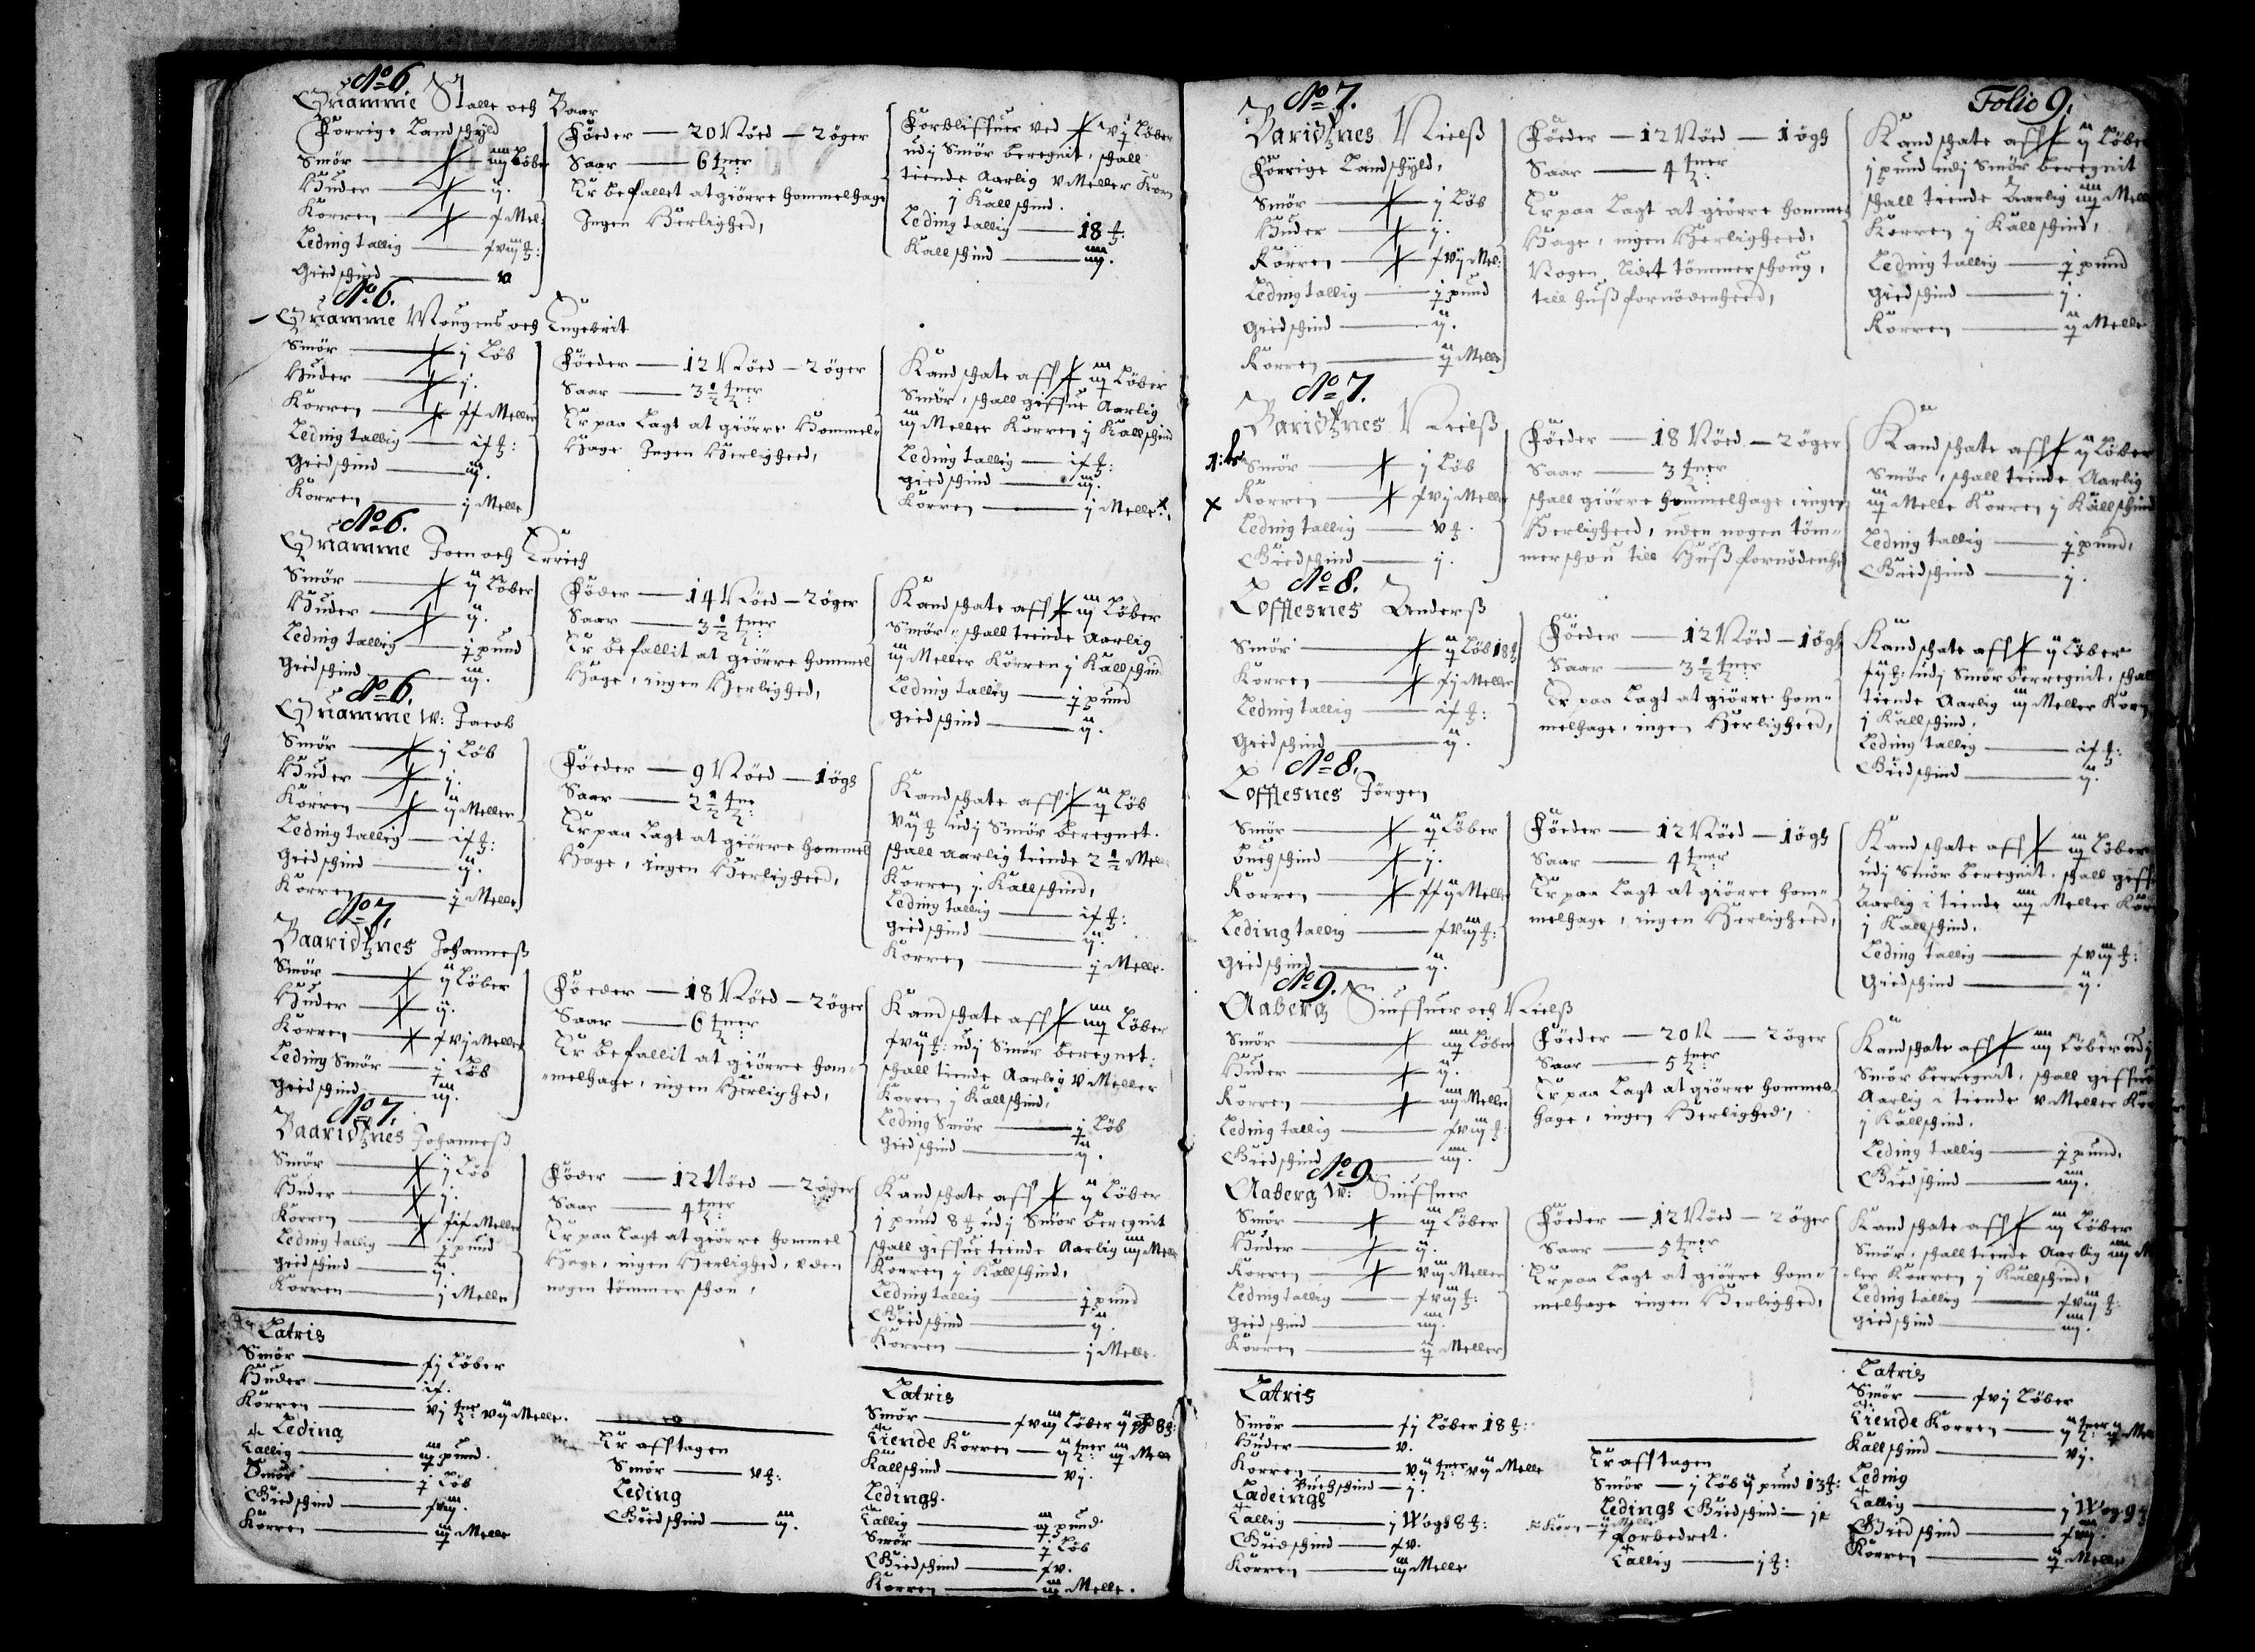 No 6.
Quamme Stalle och Baar
Forrige Landschyld
Smör — iiij Löber
Huder — ij.
Korren — x Mel:
Leding tallig — xviij ℔:
Giedschind — v
Föeder — 20 Nöed — 2 öger
Saar — 6 tner
Er befallet at giörre hommelhage
Ingen Herlighed,
Forbliffuer ved
udj Smör beregnit, schall
tiende Aarlig v Meller Korn
j Kalfschind.
Leding tallig — 18 ℔:
Kalfschind — iiij.
No 6.
Quamme Mougens och Engebrit
Smör — j Löb
Huder — j.
Korren — xx Meller
Leding tallig — ix ℔:
Giedschind — iij.
Korren — j Melle
Föeder — 12 Nöed — 2 öger
Saar — 3½ tner
Er paa Lagt at giörre Hommel-
Hage Ingen Herligheed,
Kand schate aff iij Löber
Smör, schall giffue Aarlig
iij Meller Korren j Kalfschind
Leding tallig — ix ℔:
giedschind — iij.
Korren — j Melle.
No 6.
Quamme Joen och Erich
Smör — ij Löber
Huder — ij.
Leding tallig — j pund
Giedschind — iij.
Föder — 14 Nöed — 2 öger
Saar — 3½ tner
Er befallit at giörre Hommel
Hage, ingen Herlighed,
Kand schate aff iij Löber
Smör, schall tiende Aarlig
iij Meller Korren j Kalfschind
Leding tallig — j pund
giedschind — ij.
No 6.
Quamme W: Jacob
Smör — j Löb
Huder — j.
Korren — ij Meller
Leding tallig — ix ℔:
Giedschind — ij.
Korren — j Melle
Föeder — 9 Nöed — 1 ögh
Saar — 2½ tne
Er paa Lagt at giörre hommel
Hage, ingen Herligheed,
Kand schate aff ij Löb
vij ℔ udj Smör beregnet.
schall aarlig tiende 2½ Mell
Korren j Kalfschind,
Leding tallig — ix ℔:
giedschind — ij.
Korren — j Melle.
No 7.
Baaridtznes Johanness
Smör — ij Löber
Huder — ij.
Korren — xvj Meller
Leding Smör — j Löb
Giedschind — iij.
Föeder — 18 Nöed — 2 öger
Saar — 6 tner
Er befallit at giörre hom-
melhage, ingen Herlighed,
Kand schate aff iiij Löber
xvij ℔: udj Smör beregnet:
schall tiende Aarlig v Meller
Korren j Kalfschind,
Leding Smör — j Löb
Giedschind — ij.
No 7.
Baaridtznes Johanness
Smör — j Löb
Huder — j.
Korren — xix Meller
Leding tallig — j pund
giedschind — ij.
Korren — j Melle
Föder — 12 Nöed — 2 öger
Saar — 4 tner
Er paa Lagt at giörre hommel
Hage, ingen Herlighed, uden
nogen tömmer schou,
Kand schate aff ij Löber
j pund 8 ℔ udj Smör beregnit
schall giffue tiende Aarlig iiij Melle
Korren j Kalfschind,
Leding tallig — j pund
Giedschind — ij.
Korren — j Melle.
Latris
Smör — xj Löber
Huder — ix.
Korren — vj tner vij Melle.
Leding
Tallig — iij pund.
Smör — j Löb
Giedschind — xviij.
Korren — iij Melle
Er afftagen
Smör — v ℔:
Leding
Giedschind — iij.
Latris
Smör — xviij Löber ij pd 8 ℔:
Tiende Korren — ij tner iij Melle
Kalfschind — vj.
Ledings.
Tallig — iij pund
Smör — j Löb
Giedschind — xv.
Korren — iij Melle.
Folio 9.
No 7.
Baridtznes Nielss
Forrige Landschyld,
Smör — j Löb
Huder — j.
Korren — xvj Mel:
Leding tallig — j pund
Giedschind — ij.
Korren — ij Melle
Föeder — 12 Nöed — 1 ögh
Saar — 4 tner
Er paa Lagt at giörre hommel
Hage, ingen Herligheed,
Nogen Lidet tömmerschoug,
till huss fornödenheed,
Kand schate aff ij Löber
j pund udj Smör beregnit
schall tiende Aarlig iiij Mell
Korren j Kalfschind,
Leding tallig — j pund
giedschind — j.
Korren — ij Melle
No 7.
Baridtznes Nielss
Smör — j Löb
Korren — xvj Meller
Leding tallig — v ℔.
Giedschind — j.
Föeder — 18 Nöed — 2 öger
Saar — 3 tner
schall giörre hommelhage, ingen
Herligheed, uden nogen töm-
merschou till Huss fornödenhe
Kand schate aff ij Löber
Smör, schall tiende Aarlig
iij Melle Korren j Kalfschind
Leding tallig — j pund,
Giedschind — j.
No 8.
Lofflesnes Anderss
Smör — ij Löb 18 ℔
Korren — xj Meller
Leding tallig — ix ℔:
Giedschind — ij.
Föeder — 12 Nöed — 1 ögh
Saar — 3½ tner
Er paa Lagt at giörre hom-
melhage, ingen Herligheed,
Kand schate aff ij Löber
xij ℔: udj Smör berregnit, schall
tiende Aarlig iij Meller Korn
j Kalfschind.
Leding tallig — ix ℔:
Giedschind — ij.
No 8.
Lofflesnes Jörgen
Smör — ij Löber
buchschind — j.
Korren — xxij Melle
Leding tallig — xviij ℔:
Giedschind — ij.
Föeder — 12 Nöed — 1 ögh
Saar — 4 tner
Er paa Lagt at giörre hom-
melhage, ingen Herligheed,
Kand schate aff iij Löber
udj Smör beregnit. schall giff
Aarlig i tiende iiij Meller Kor
j Kalfschind.
Leding tallig — xviij ℔:
Giedschind — ij.
No 9.
Aaberg Siuffuer och Nielss
Smör — iiij Löber
Huder — ij.
Korren — iiij Meller
Leding tallig — xviij ℔:
Giedschind — iiij.
Föeder — 20 N — 2 öger
Saar — 5 tner
Er paa Lagt at giörre hommel
hage, ingen Herlighed,
Kand schate aff iiij Löber udj
Smör berregnit, schall giffue
Aarlig i tiende v Meller Kor
j Kalfschind.
Leding tallig — j pund.
Giedschind — iiij.
No 9.
Aaberg W: Siuffuer
Smör — iij Löber
Huder — ij.
Korren — viij Meller
Leding tallig — xviij ℔:
giedschind — iiij.
Korren — ij Meller
Föeder — 12 Nöed — 2 öger
Saar — 5 tner
Er paa Lagt at giörre hom-
melhage ingen Herlighed,
Kand schate aff iij Löber
Smör, schall tiende Aarlig iiij M
ler Korren j Kalfschind,
Leding tallig — xviij ℔:
giedschind — iiij.
Latris
Smör — xj Löber 18 ℔:
Huder — v.
Korren — vij tner vij Melle
Buchschind — j.
Ladeings
Tallig — j Wogh 8 ℔:
Giedschind — xv.
Korren — iij Melle
Er afftagen
Smör — j Löb ij pund 13 ℔:
Ledings Giedschind — j
Korn — ij Melle
Forbedret.
Tallig — j ℔:
Latris
Smör — xvj Löber
Tiende Korren — ij tner ij Melle
Kalfschind — vj.
Leding
Tallig — j Wog 9 ℔
Giedschind — xiiij.
Korren — ij Melle